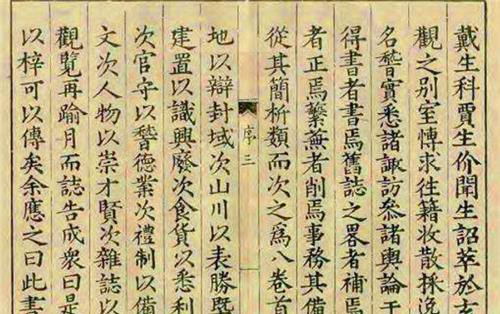 戴生科賈生价聞生詔萃於玄
觀之別室博求往籍收散採逸
名稽實悉諸諏訪參諸輿論于
得書者書焉舊誌之畧者補焉
者正焉蘩蕪者削焉事務其備
從其簡析類而次之為八卷首
序三
地以辯封域次山川以表勝
建置以識興廢次食貨以悉利
次官守以稽德業次禮制以備
文次人物以崇才賢次雜誌以
觀覽再踰月而誌告成衆曰是
以梓可以傳矣余應之曰此書